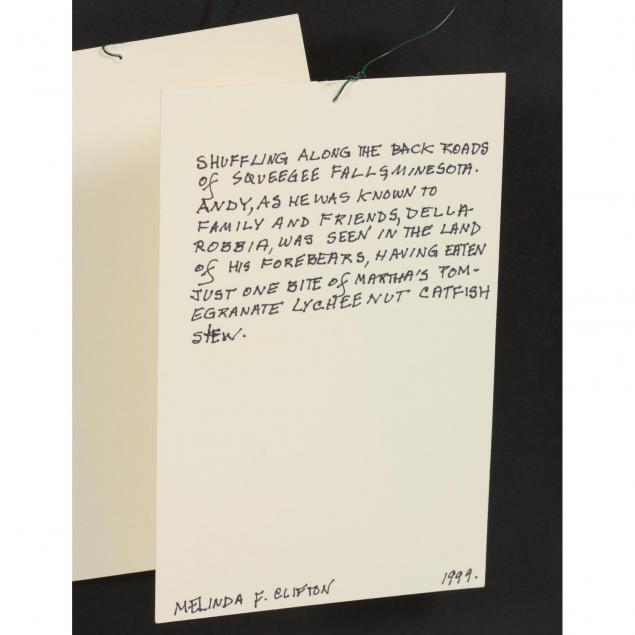 SHUFFLING ALONG THE BACK ROADS
of SQUEEGEE FALLS, MINESOTA.
ANDY, AS HE WAS KNOWN TO
FAMILY AND FRIENDS, DELLA-
ROBBIA, WAS SEEN IN THE LAND
of HIS FOREBEARS, HAVING EATEN
JUST ONE BITE of MARTHA'S POM-
EGRANATE LYCHEE NUT CATFISH
STEW.
MELINDA F. CLIFTON
1999.